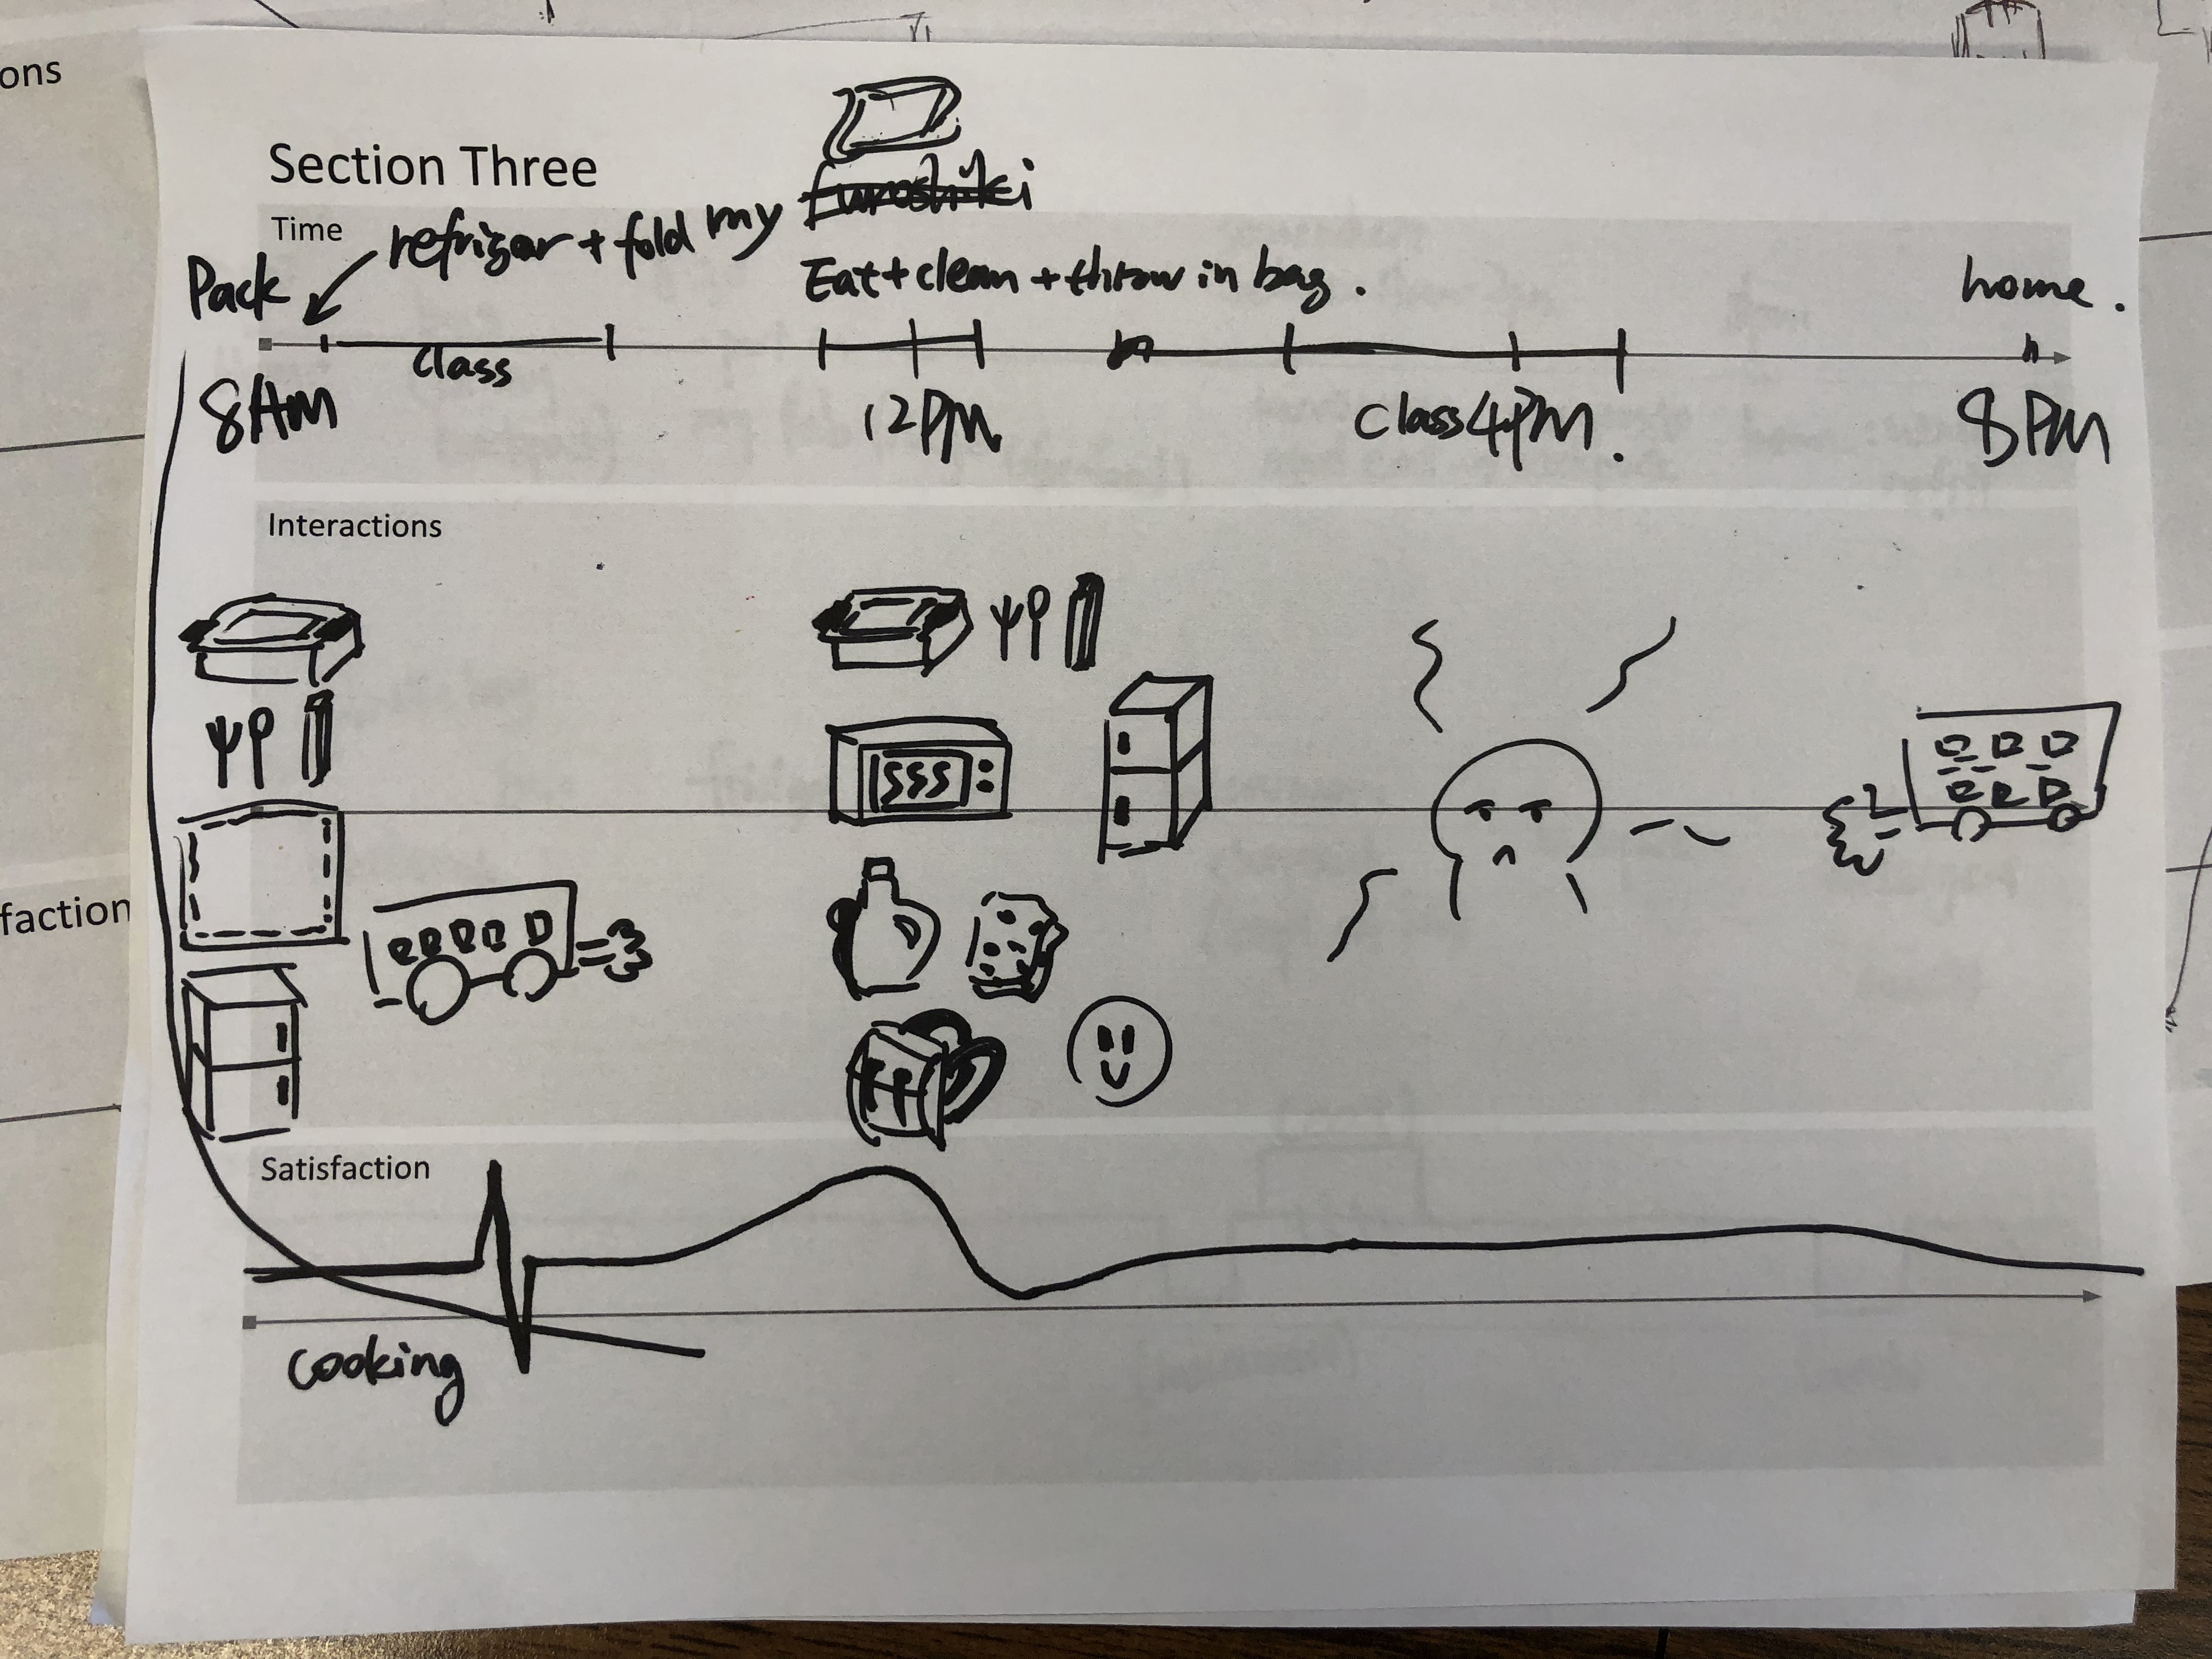 ons
Section Three
Time
refrigar + fold my furoshiki
Pack
Eat + clean + throw in bag .
home .
class
8AM
12PM
class 4PM .
8PM
Interactions
SSS
faction
Satisfaction
cooking